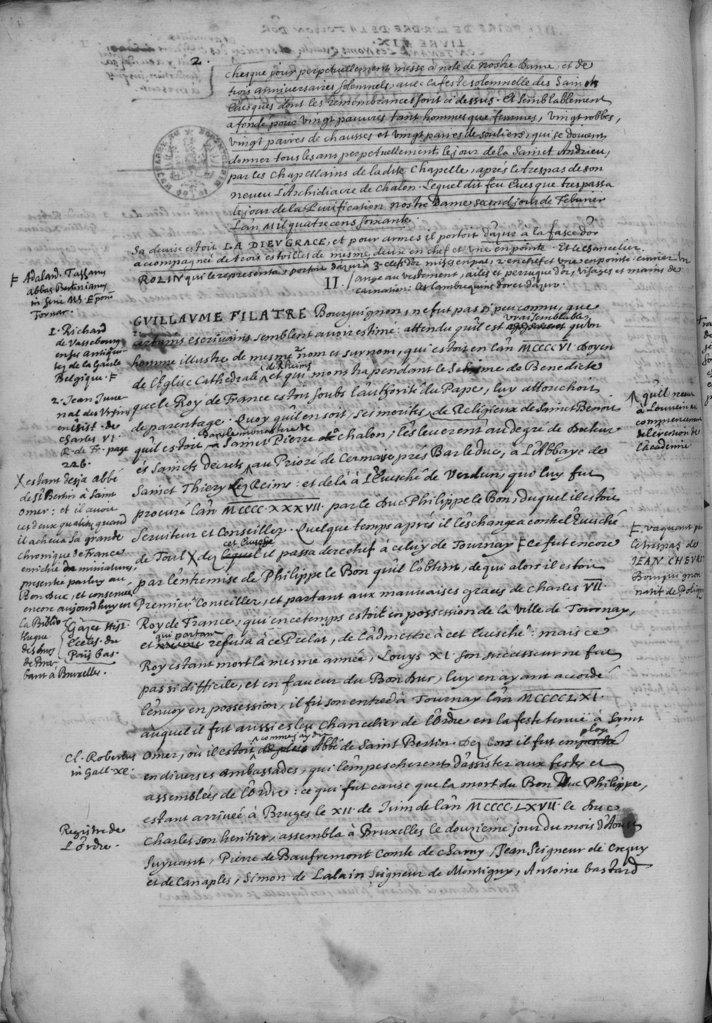 2.
chesque jour perpetuellement messe à note de nostre Dame, et de
trois anniversaires solennels, avec la feste solemnelle des Saincts
Evesques dont les remembrances sont ci dessus. Et semblablement
a fondé pour vingt pauvres tant hommes que femmes, vingt robbes,
vingt paires de chausses et vingt paires de souliers, qui se doivent
donner tous les ans perpetuellement le jour de la Sainct Andrieu,
par les Chapellains de la dite Chapelle, apres le trespas de son
neveu L'Archidiacre de Chalon. Lequel dit feu Evesque trespassa
le jour de la Purification Nostre Dame second jour de Febvrier
L'an Mil quatre cens soixante.
Sa devise estoit LA DIEU GRACE, et pour armes il portoit d'azur à la fasce d'or
accompagnée de trois estoilles de mesme, deux en chef et une en pointe. Et le Chancelier
ROLIN qui le representa, portoit d'azur à 3. clefs d'or mises en pal, 2 en chef et une en pointe: cimier un
II. ange au vestement, ailes et perruque d'or, visage et mains de
carnation: Et lambrequins d'or et d'azur.
GUILLAUME FILATRE Bourguignon, ne fut pas si peu connu, que
semblent avoir estimé: attendu qu'il est vraisemblable qu'un
homme illustre de mesme nom et surnom, qui estoit en l'an MCCCCVI Doyen
de l'Eglise Cathedrale de Reims et qui mourut pendant le de Benedicte
que le Roy de France estoit soubs l'authorité du Pape, luy attouchoit
de parentage. Quoy qu'il en soit, ses merites, de Religieux de Sainct Benoit
qu'il estoit Sainct Pierre de Chalon, l'esleverent au degre de Docteur
és Saincts decrets, au Prioré de Cermaye prés Bar le Duc, à l'Abbaye de
Sainct Thiery lez Reims: et delà à l'Evesché de Verdun, qui luy fut
procuré l'an MCCCC.XXXVII. par le Duc Philippe le Bon, duquel il estoit
Serviteur et Conseiller. Quelque temps apres il l'eschangea contre l'Evesché
de Toul X de cet Evesché il passa derechef à celuy de Tournay F ce fut encore
par l'entremise de Philippe le Bon qu'il l'obtint, de qui alors il estoit
Premier Conseiller, et partant aux mauvaises graces de Charles VII.
Roy de France, qui en ce temps estoit en possession de la ville de Tournay,
et qui partant refusa à ce Prelat, de l'admettre à cet Evesché: mais ce
Roy estant mort la mesme année, Louys XI. son successeur ne fut
pas si difficile, et en faveur du Bon Duc, luy en ayant accordé
l'envoy en possession, il fit son entrée à Tournay l'an MCCCCLXI.
auquel il fut aussi esleu Chancelier de l'Ordre en la feste tenue à Saint
Omer, où il estoit comme ay dit Abbé de Saint Bertin. Des lors il fut employé
en diverses ambassades, qui l'empescherent d'assister aux festes et
assemblées de l'Ordre: ce qui fut cause que la mort du Bon Duc Philippe,
estant arrivée à Bruges le XII de Juin de l'an MCCCC.LXVII. le Duc
Charles son heritier, assembla à Bruxelles le douzieme jour du mois d'Aoust
suyvant, Pierre de Baufremont Comte de Charny, Jean Seigneur de Crequy
et de Canaples, Simon de Lalain Seigneur de Montigny, Antoine bastard
F Adalard Tassart
abbas Bertinianus
in suis MS.
Tornac.
1. Richard
de Wassebourg
en ses Antiqui-
tez de la Gaule
Belgique. F
2. Jean Juve-
nal des Ursins
en l'hist. de
Charles VI.
R. de Fr. page
226.
X estant desja abbé
de St Bertin à Saint
Omer: et il avoit
ces deux qualitez quand
il acheva sa grande
chronique de France
enrichie de miniatures,
presentée par luy au
Bon Duc, et conservée
encore aujourdhuy en
la Biblio-
theque
des ducs
de Bra-
bant à Bruxelles.
Gazet Hist.
Eccles. du
Pais bas.
Cl. Robertus
in Gall. XC.
Registre de
L'Ordre.
à Louvain
l'erection de
l'Academie
F. vaquant par
le trespas de
JEAN CHEVROT
Bourguignon
natif de Poligny